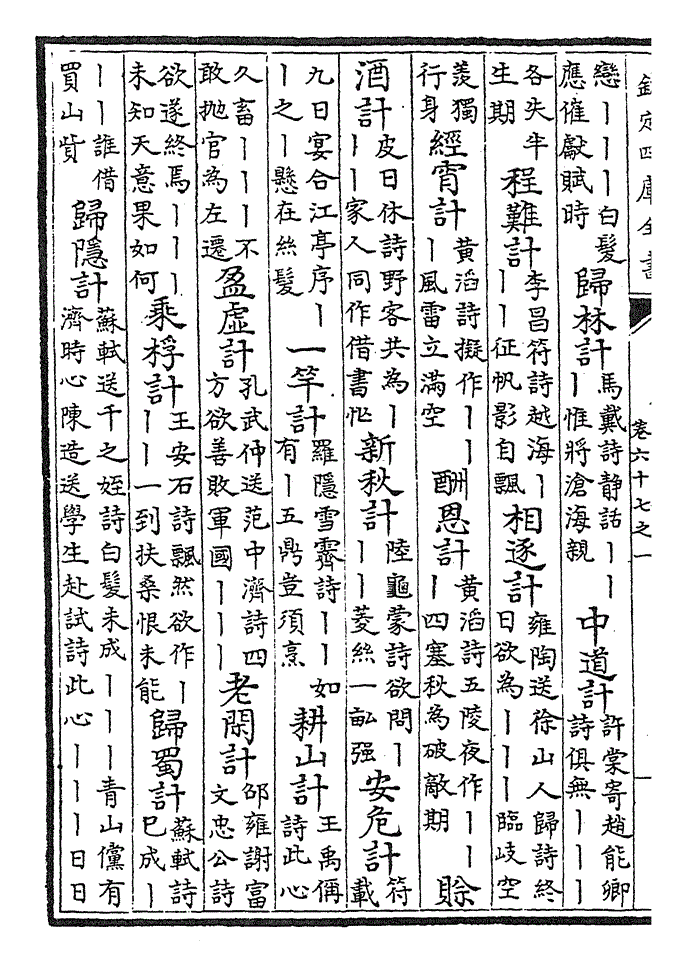 欽定四庫全書 卷六十七之一
戀丨丨丨白髮應催獻賦時 歸林計 馬戴詩静話丨丨丨惟將滄海親 中道計 許棠寄趙能卿詩俱無丨丨丨
各失半生期 程難計 李昌符詩越海丨丨丨征帆影自飄 相逐計 雍陶送徐山人歸詩終日欲為丨丨丨臨歧空
羨獨行身 經宵計 黄滔詩擬作丨丨丨風雷立滿空 酬恩計 黄滔詩五陵夜作丨丨丨四塞秋為破敵期 賒
酒計 皮日休詩野客共為丨丨丨家人同作借書忙 新秋計 陸龜蒙詩欲問丨丨丨菱絲一畝强 安危計 符載
九日宴合江亭序丨丨之丨懸在絲髮 一竿計 羅隱雪霽詩丨丨如有丨五鼎豈須烹 耕山計 王禹偁詩此心
久畜丨丨丨不敢抛官為左遷 盈虛計 孔武仲送范中濟詩四方欲善敗軍國丨丨丨 老閑計 邵雍謝富文忠公詩
欲遂終焉丨丨丨未知天意果如何 乘桴計 王安石詩飄然欲作丨丨丨一到扶桑恨未能 歸蜀計 蘇軾詩已成丨
丨丨誰借買山貲 歸隱計 蘇軾送千之姪詩白髮未成丨丨丨青山儻有濟時心陳造送學生赴試詩此心丨丨丨日日